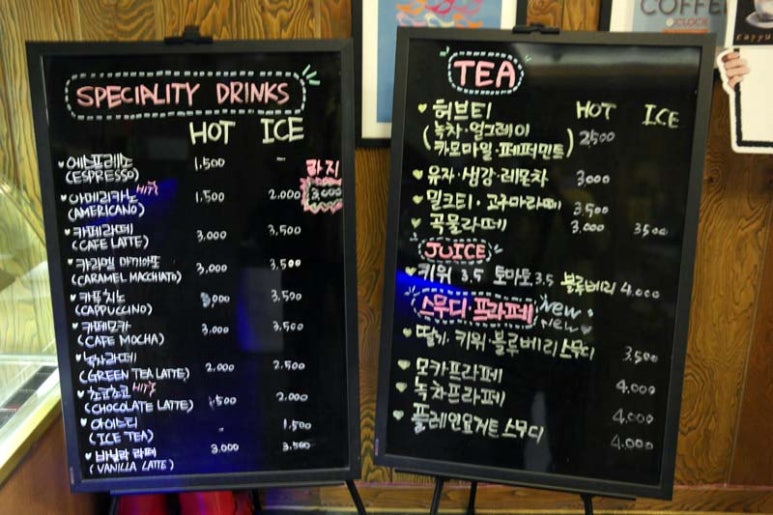 SPECIALITY DRINKS
HOT ICE
에스프레소 1.500 -
(ESPRESSO)
라지
아메리카노 HIT! 1,500 2.000 3,000
(AMERICANO)
카페라떼 3,000 3,500
(CAFE LATTE)
카라멜 마끼아또 3,000 3,500
(CARAMEL MACCHIATO)
카푸치노 3,000 3,500
(CAPPUCCINO)
카페모카 3,000 3,500
(CAFE MOCHA)
녹차라떼 2.000 2,500
(GREEN TEA LATTE)
초코초코 HIT! 1,500 2.000
(CHOCOLATE LATTE)
아이스티 - 1.500
(ICE TEA)
바닐라 라떼 3.000 3.500
(VANILLA LATTE)
TEA
HOT ICE
허브티 2,500
(녹차·얼그레이
카모마일·페퍼민트)
유자·생강·레몬차 3,000
밀크티·고구마라떼 3.500
곡물라떼 3.000 3500
JUICE
키위 3.5 토마토 3.5 블루베리 4.000
스무디·프라페 New
New
딸기·키위·블루베리 스무디 3,500
모카프라페 4.000
녹차프라페 4.000
플레인요거트 스무디 4.000
COFFEE
O'CLOCK